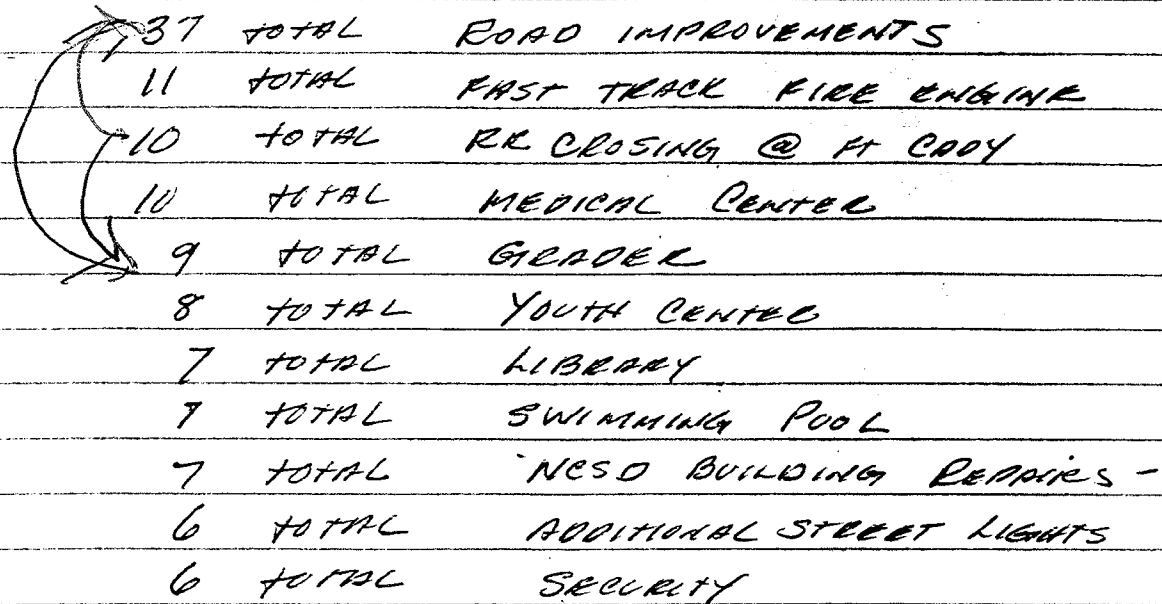 37 TOTAL ROAD IMPROVEMENTS
11 TOTAL FAST TRACK FIRE ENGINE
10 TOTAL RR CROSING @ FT CADY
10 TOTAL MEDICAL CENTER
9 TOTAL GRADER
8 TOTAL YOUTH CENTER
7 TOTAL LIBRARY
7 TOTAL SWIMMING POOL
7 TOTAL NCSD BUILDING REPAIRS -
6 TOTAL ADDITIONAL STREET LIGHTS
6 TOTAL SECURITY